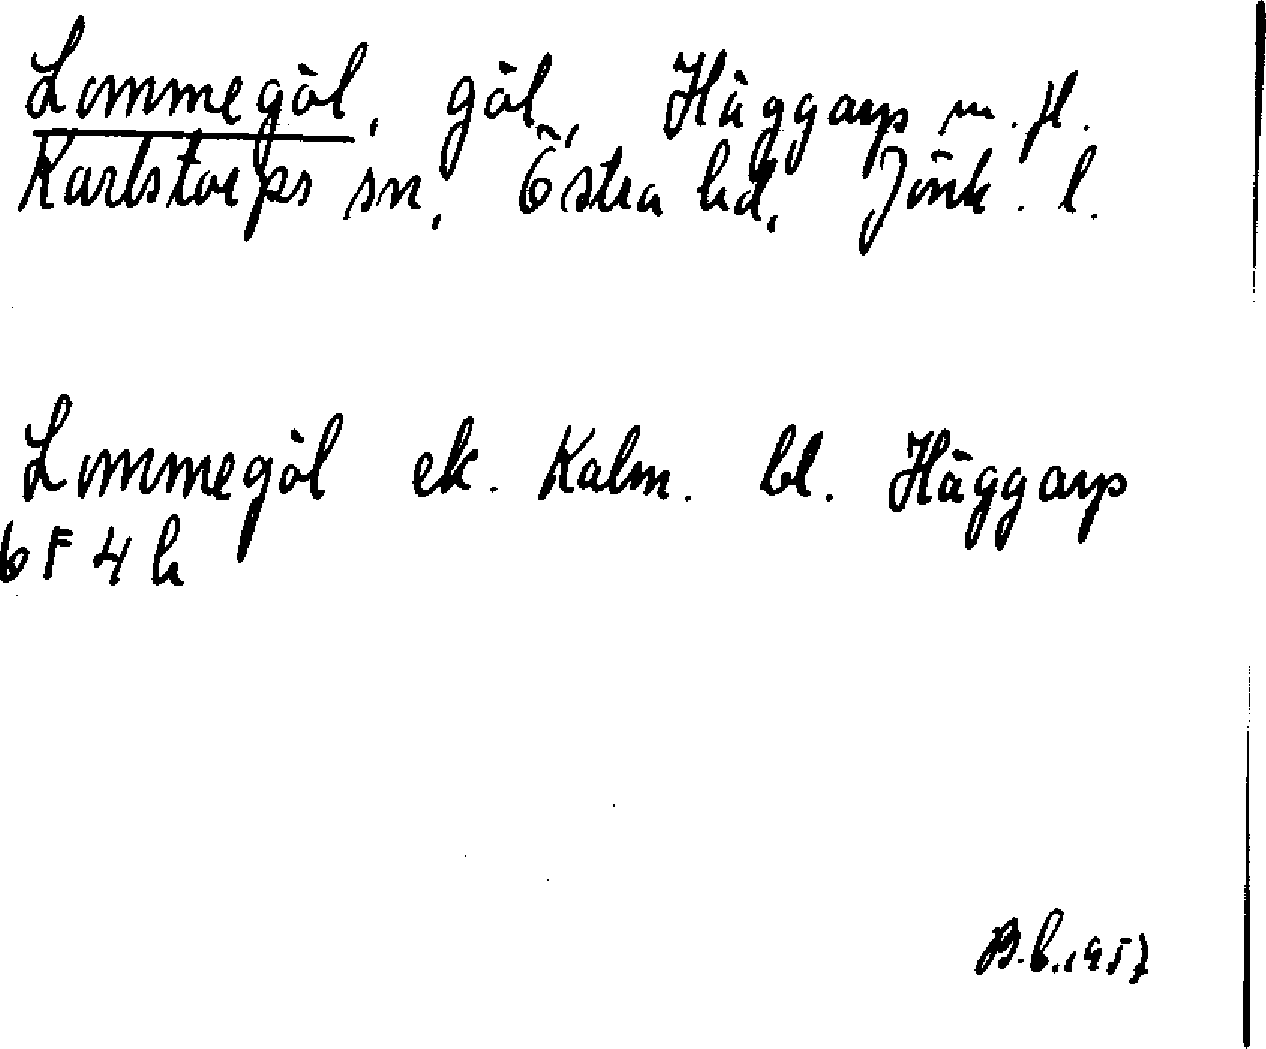 Lommegöl, göl, Häggarp m. fl.
Karlstorps sn, Östra hd, Jönk. l.
Lommegöl ek. Kalm. bl. Häggarp
6 F 4 h
B.b. 1957